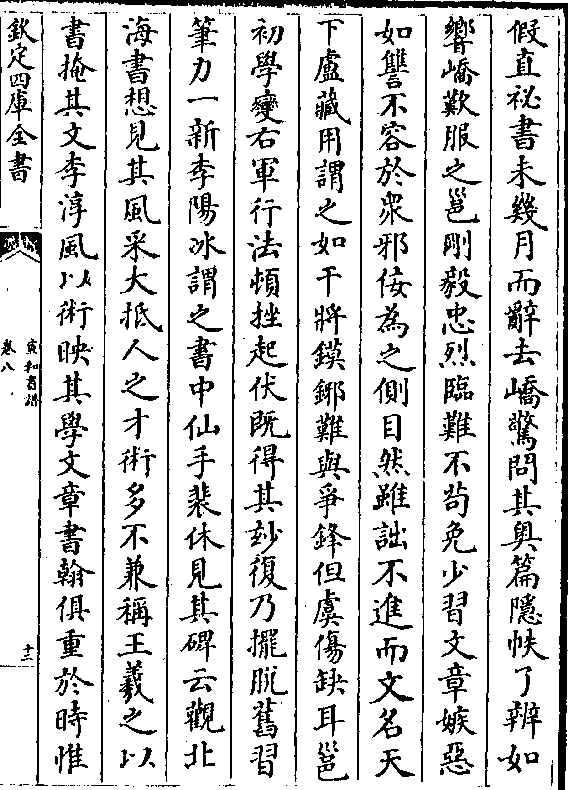 假直祕書未幾月而辭去嶠驚問其奥篇隱帙了辨如
響嶠歎服之邕剛毅忠烈臨難不茍免少習文章嫉惡
如讐不容於衆邪佞為之側目然雖詘不進而文名天
下盧藏用謂之如干將鏌鎁難與爭鋒但虞傷缺耳邕
初學變右軍行法頓挫起伏既得其妙復乃擺脱舊習
筆力一新李陽冰謂之書中仙手裴休見其碑云觀北
海書想見其風采大抵人之才術多不兼稱王羲之以
書掩其文李淳風以術映其學文章書翰俱重於時惟
欽定四庫全書
宣和書譜
卷八
十三